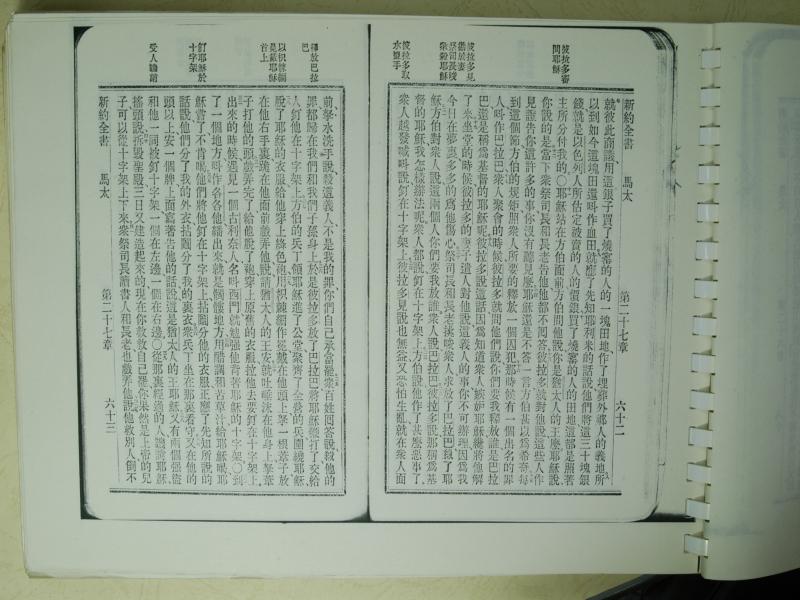 新約全書　馬太　第二十七章　六十二
彼拉多審
問耶穌
彼拉多取
水盥手
就彼此商議用這銀子買了燒窰的人的一塊田地作了埋葬外鄉人的義地所
以到如今這塊田還呌作血田就應了先知耶利米的話說他們將這三十塊銀
錢就是以色列人所估定被賣的人的價銀買了燒窰的人的田地這都是照著
主所分付我的〇耶穌站在方伯面前方伯問他說你是猶太人的王麽耶穌說
你說的是當下衆祭司長和長老告他他都不囘答彼拉多就對他說這些人作
見證告你這許多的事你沒有聽見麽耶穌還是不答一言方伯甚以爲希奇每
到這個節方伯有規矩照衆人所要的釋放一個囚犯那時候有一個出名的罪
人呌作巴拉巴衆人聚會的時候彼拉多就問他們說你們要我釋放誰是巴拉
巴還是稱爲基督的耶穌呢彼拉多說這話因爲知道衆人嫉妒耶穌纔將他解
了來坐堂的時候彼拉多的妻子遣人對他說這義人的事你不可辦理因爲我
今日在夢裏多多的爲他傷心祭司長和長老挑唆衆人求放了巴拉巴殺了耶
穌方伯對衆人說這兩個人你們要我放誰衆人說巴拉巴彼拉多說那稱爲基
督的耶穌我怎樣辦法呢衆人都說釘在十字架上方伯說他作了甚麽惡事了
衆人越發喊呌說釘在十字架上彼拉多見說也無益又恐怕生亂就在衆人面
釋放巴拉
巴
以枳棘編
冕戴耶穌
首上
釘耶穌於
十字架
受人譏誚
前拏水洗手說殺這義人不是我的罪你們自己承當罷衆百姓囘答說殺他的
罪都歸在我們和我們子孫身上於是彼拉多放了巴拉巴將耶穌鞭打了交給
人釘他在十字架上方伯的兵丁領耶穌進了公堂聚齊了全營的兵圍繞耶穌
脫了耶穌的衣服給他穿上絳色袍用枳棘編作冕戴在他頭上拏一根葦子放
在他右手裏跪在他面前戲弄他說請猶太人的王安就吐唾沫在他身上拏葦
子打他的頭戲弄完了給他脫了袍穿上原舊的衣服拉他去要釘在十字架上
出來的時候遇見一個古利奈人名呌西門就勉强他背著耶穌的十字架〇到
了一個地方呌作各各他繙出來就是髑髏地方用醋調和苦草汁給耶穌喝耶
穌嘗了不肯喝他們將他釘在十字架上拈鬮分他的衣服正應了先知所說的
話說他們分了我的外衣拈鬮分了我的裏衣衆兵丁坐在那裏看守又在他的
頭以上安一個牌上面寫著告他的話說這是猶太人的王耶穌又有兩個强盜
和他一同被釘十字架一個在左邊一個在右邊〇從那裏經過的人譏誚耶穌
搖頭說拆毀聖殿三日又建造起來的現在你救救自己罷你果然是上帝的兒
子可以從十字架上下來衆祭司長讀書人和長老也戲弄他說他救別人倒不
新約全書　馬太　第二十七章　六十三